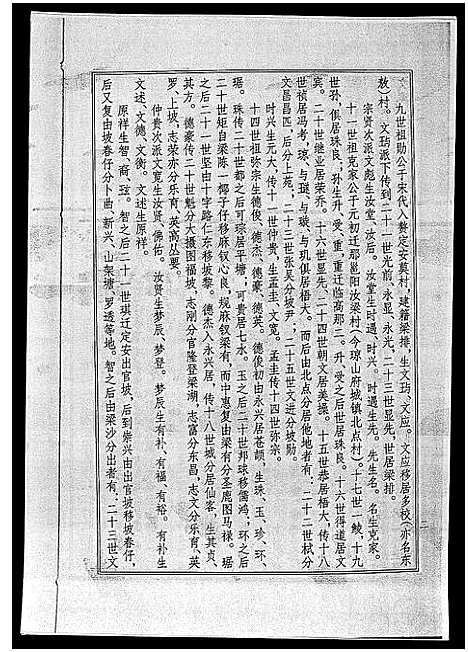 九世祖勋公于宋代入赘定安莫村，建籍梁排，生文玏、文应。文应移居多校（亦名东
敖）村。文玏派下传到二十一世光前、永显、永光。二十三世显先，世居梁排。
宗贤次派文彪生汝堂、汝后。汝堂生时遇、时兴。时遇生先。先生名。名生克家。
十一世祖克家公于元初迁那邕阳汝梁村（今琼山府城镇北点村）。十七世一鲮，十九
世孙，俱居珠良；孙生升、受、重，重迁临高那三。升、受之后世居珠良。十六世得道居文
宾。二十世继业居荣乔。十六世显先、二十四世朝文居美操。十五世恭居梧大，传十八
世祯居冯考，琼、与璇、与玑俱居梧大。而后由北点分居他地者有：二十二世栻分
文昌昌匹，后分上苑，二十三世张吴分坡尹；二十五世文进分坡勋。
时兴生元大，传十一世仲贵，生孟圭、文宽。孟圭传十四世弥宗。
十四世祖弥宗生德俊、德杰、德豪、德英。德俊初由永兴居苍颉，生珠、玉、珍、环、
琚。珠传二十世都之后可琮居平塘；可贵居七水。玉之后二十世邦球移儒鸿；环之后
二十世矩自梁陈一椰子仔移麻钗心良，规麻钗梁有，而中惠复由梁有分圣鹿图马禄。琚
之后二十一世坚由十字路仁东移坡黎。德杰入永兴居，传十八世城分居仙客，生其贞、
其方。德豪传二十世魁分大摄图福坡，志刚分官隆登梁湖，志富分东昌，志文分乐育、英
罗、上坡，志荣亦分乐育、英嵩丛要。
仲贵次派文宽生汝贤、佛佑。汝贤生梦辰、梦登。梦辰生有补、有福、有裕。有补生
文述、文德、文衡。文述生原祥。
原祥生智、裔、弦。智之后二十一世琪迁定安出官坡，后到崇兴由出官坡移坡春仔，
后又复由坡春仔分卜曲、新兴、山架塘、罗透等地。智之后由梁沙分出者有：二十三世文